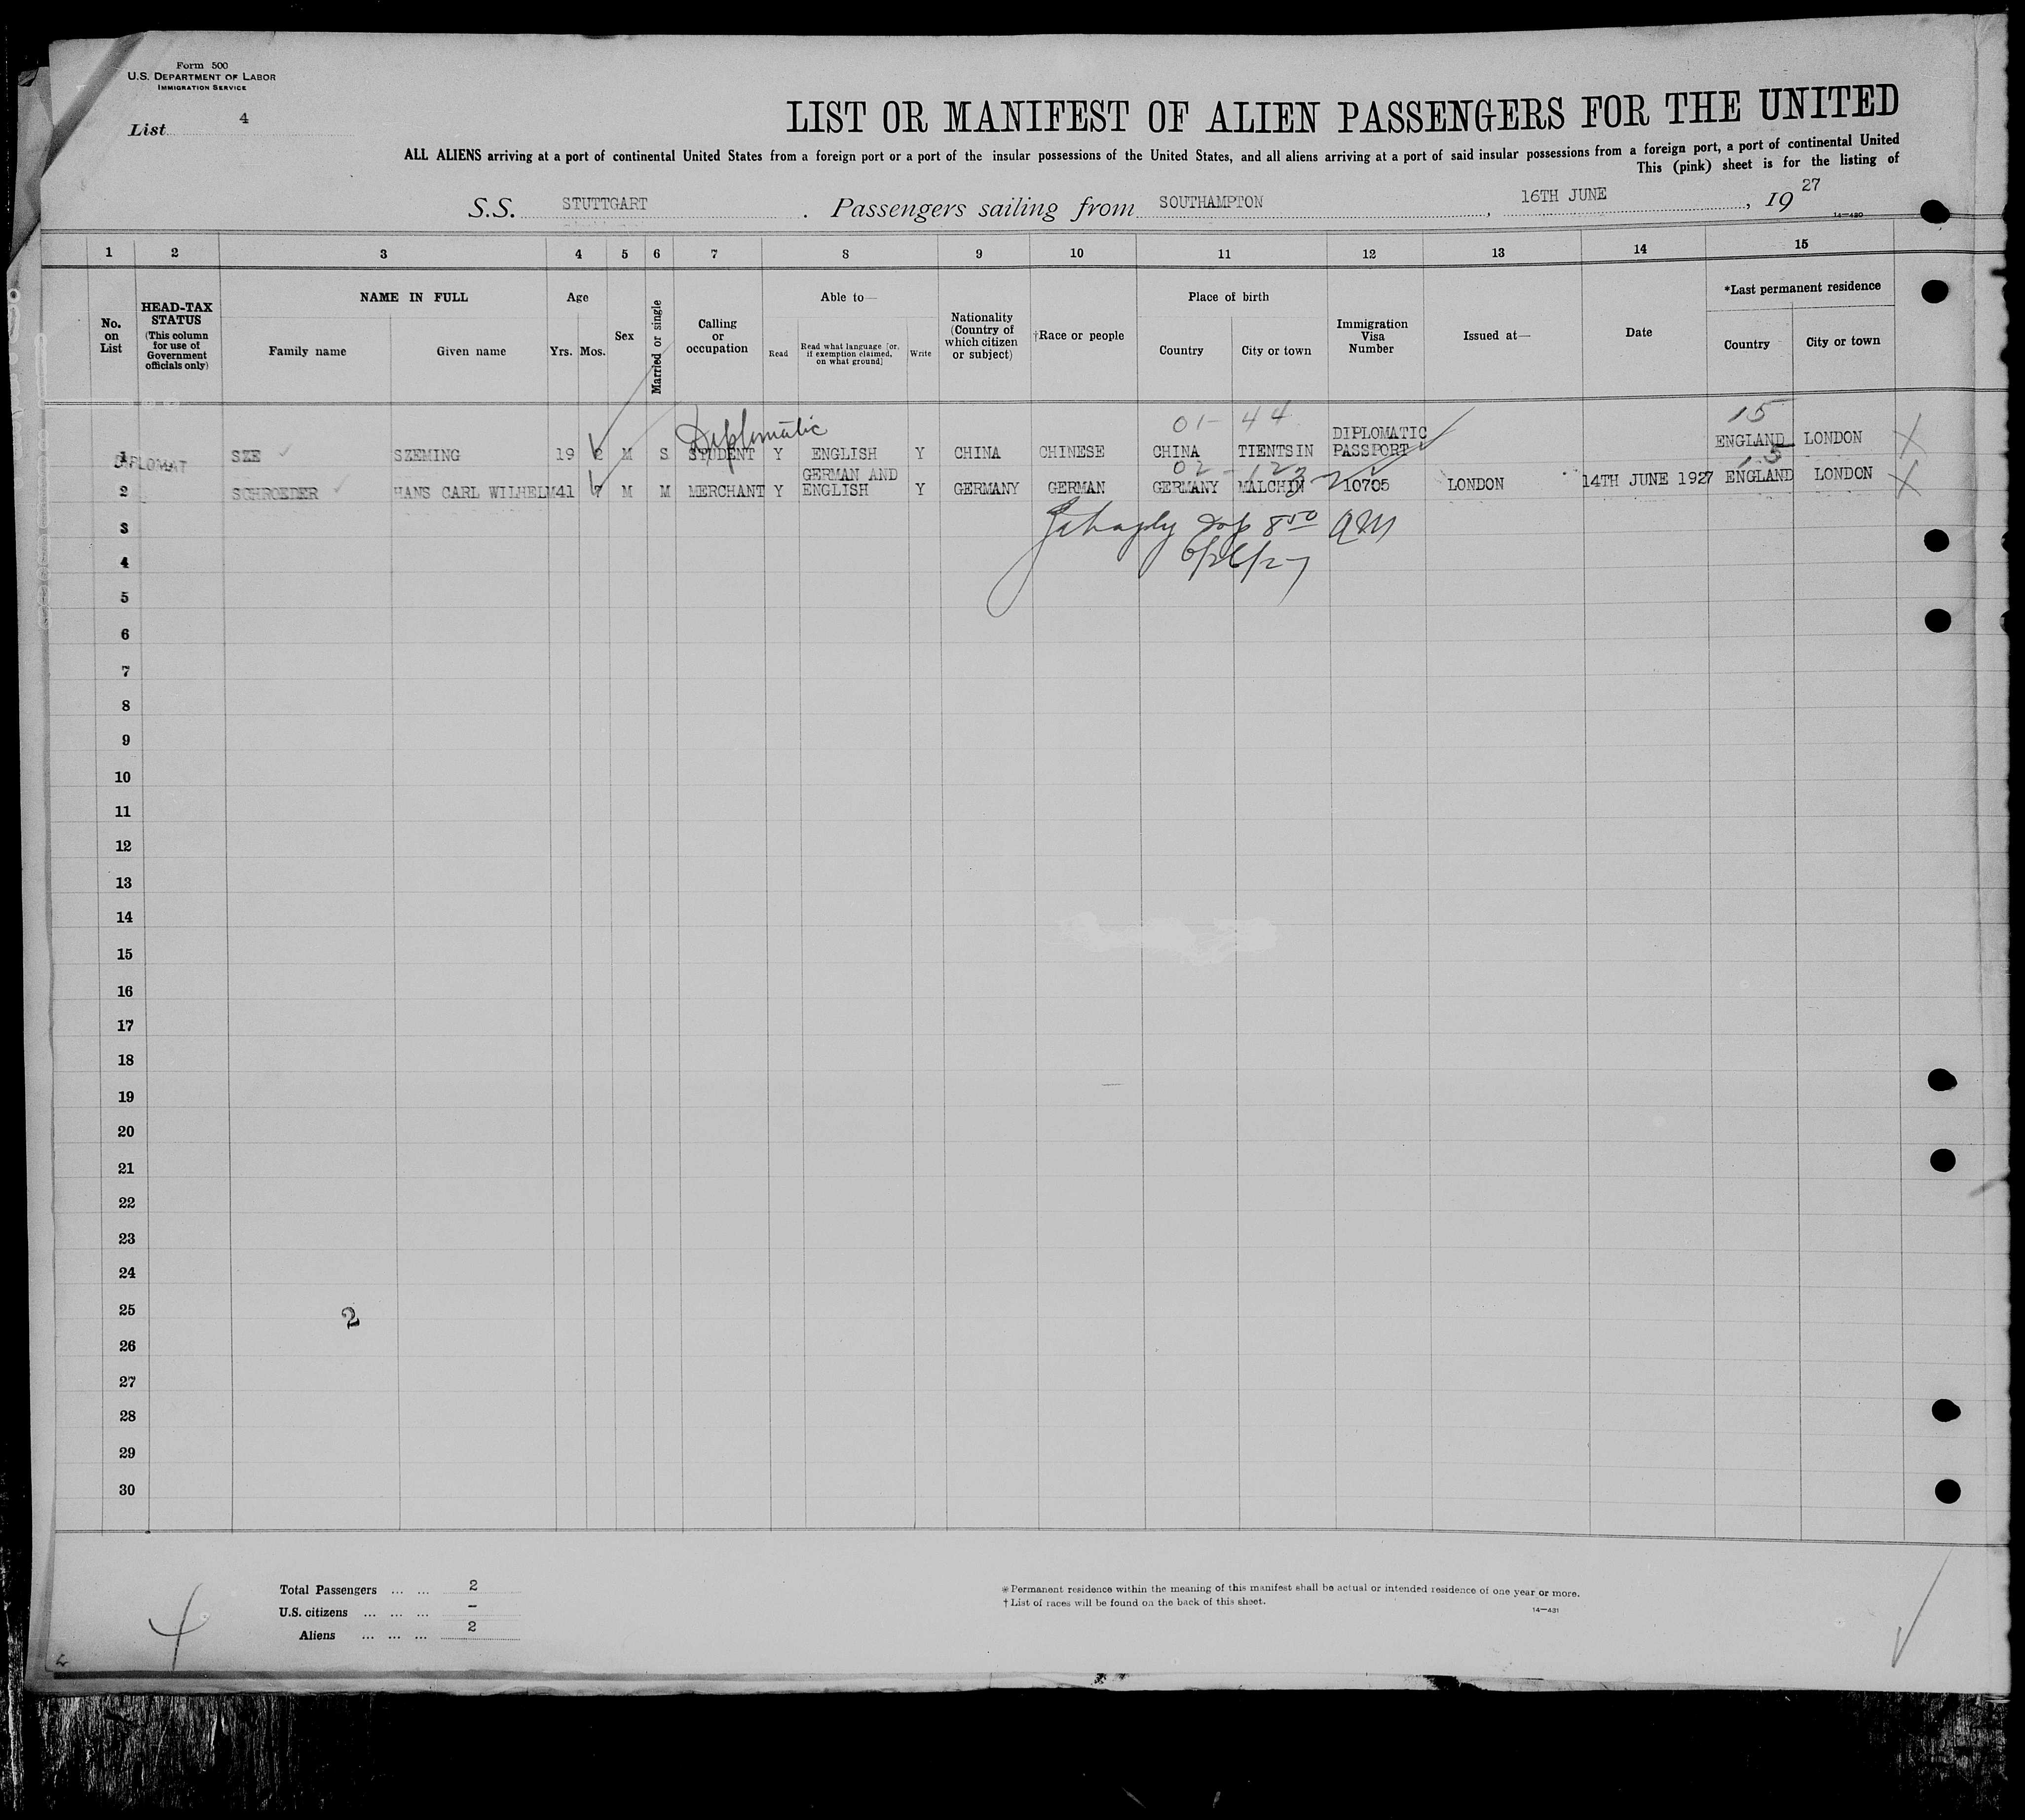 Form 500
U.S. DEPARTMENT OF LABOR
IMMIGRATION SERVICE
List 4
LIST OR MANIFEST OF ALIEN PASSENGERS FOR THE UNITED
ALL ALIENS arriving at a port of continental United States from a foreign port or a port of the insular possessions of the United States, and all aliens arriving at a port of said insular possessions from a foreign port, a port of continental United
This (pink) sheet is for the listing of
S.S. STUTTGART . Passengers sailing from SOUTHAMPTON , 16TH JUNE , 19 27
14—430
1 2 3 4 5 6 7 8 9 10 11 12 13 14 15
No. on List
HEAD-TAX STATUS (This column for use of Government officials only)
NAME IN FULL
Family name
Given name
Age
Yrs. Mos.
Sex
Married or single
Calling or occupation
Able to—
Read
Read what language [or, if exemption claimed, on what ground]
Write
Nationality (Country of which citizen or subject)
†Race or people
Place of birth
Country
City or town
Immigration Visa Number
Issued at—
Date
*Last permanent residence
Country
City or town
Diplomatic 01- 44 15
1 DIPLOMAT SZE SZEMING 19 2 M S STUDENT Y ENGLISH Y CHINA CHINESE CHINA TIENTSIN DIPLOMATIC PASSPORT ENGLAND LONDON
02-123 15
2 SCHROEDER HANS CARL WILHELM 41 7 M M MERCHANT Y GERMAN AND ENGLISH Y GERMANY GERMAN GERMANY MALCHIN 10705 LONDON 14TH JUNE 1927 ENGLAND LONDON
3 8 50 AM
4 6/26/27
5
6
7
8
9
10
11
12
13
14
15
16
17
18
19
20
21
22
23
24
25 2
26
27
28
29
30
Total Passengers ... ... 2
U.S. citizens ... ... ... –
Aliens ... ... ... 2
* Permanent residence within the meaning of this manifest shall be actual or intended residence of one year or more.
† List of races will be found on the back of this sheet.
14—431
4